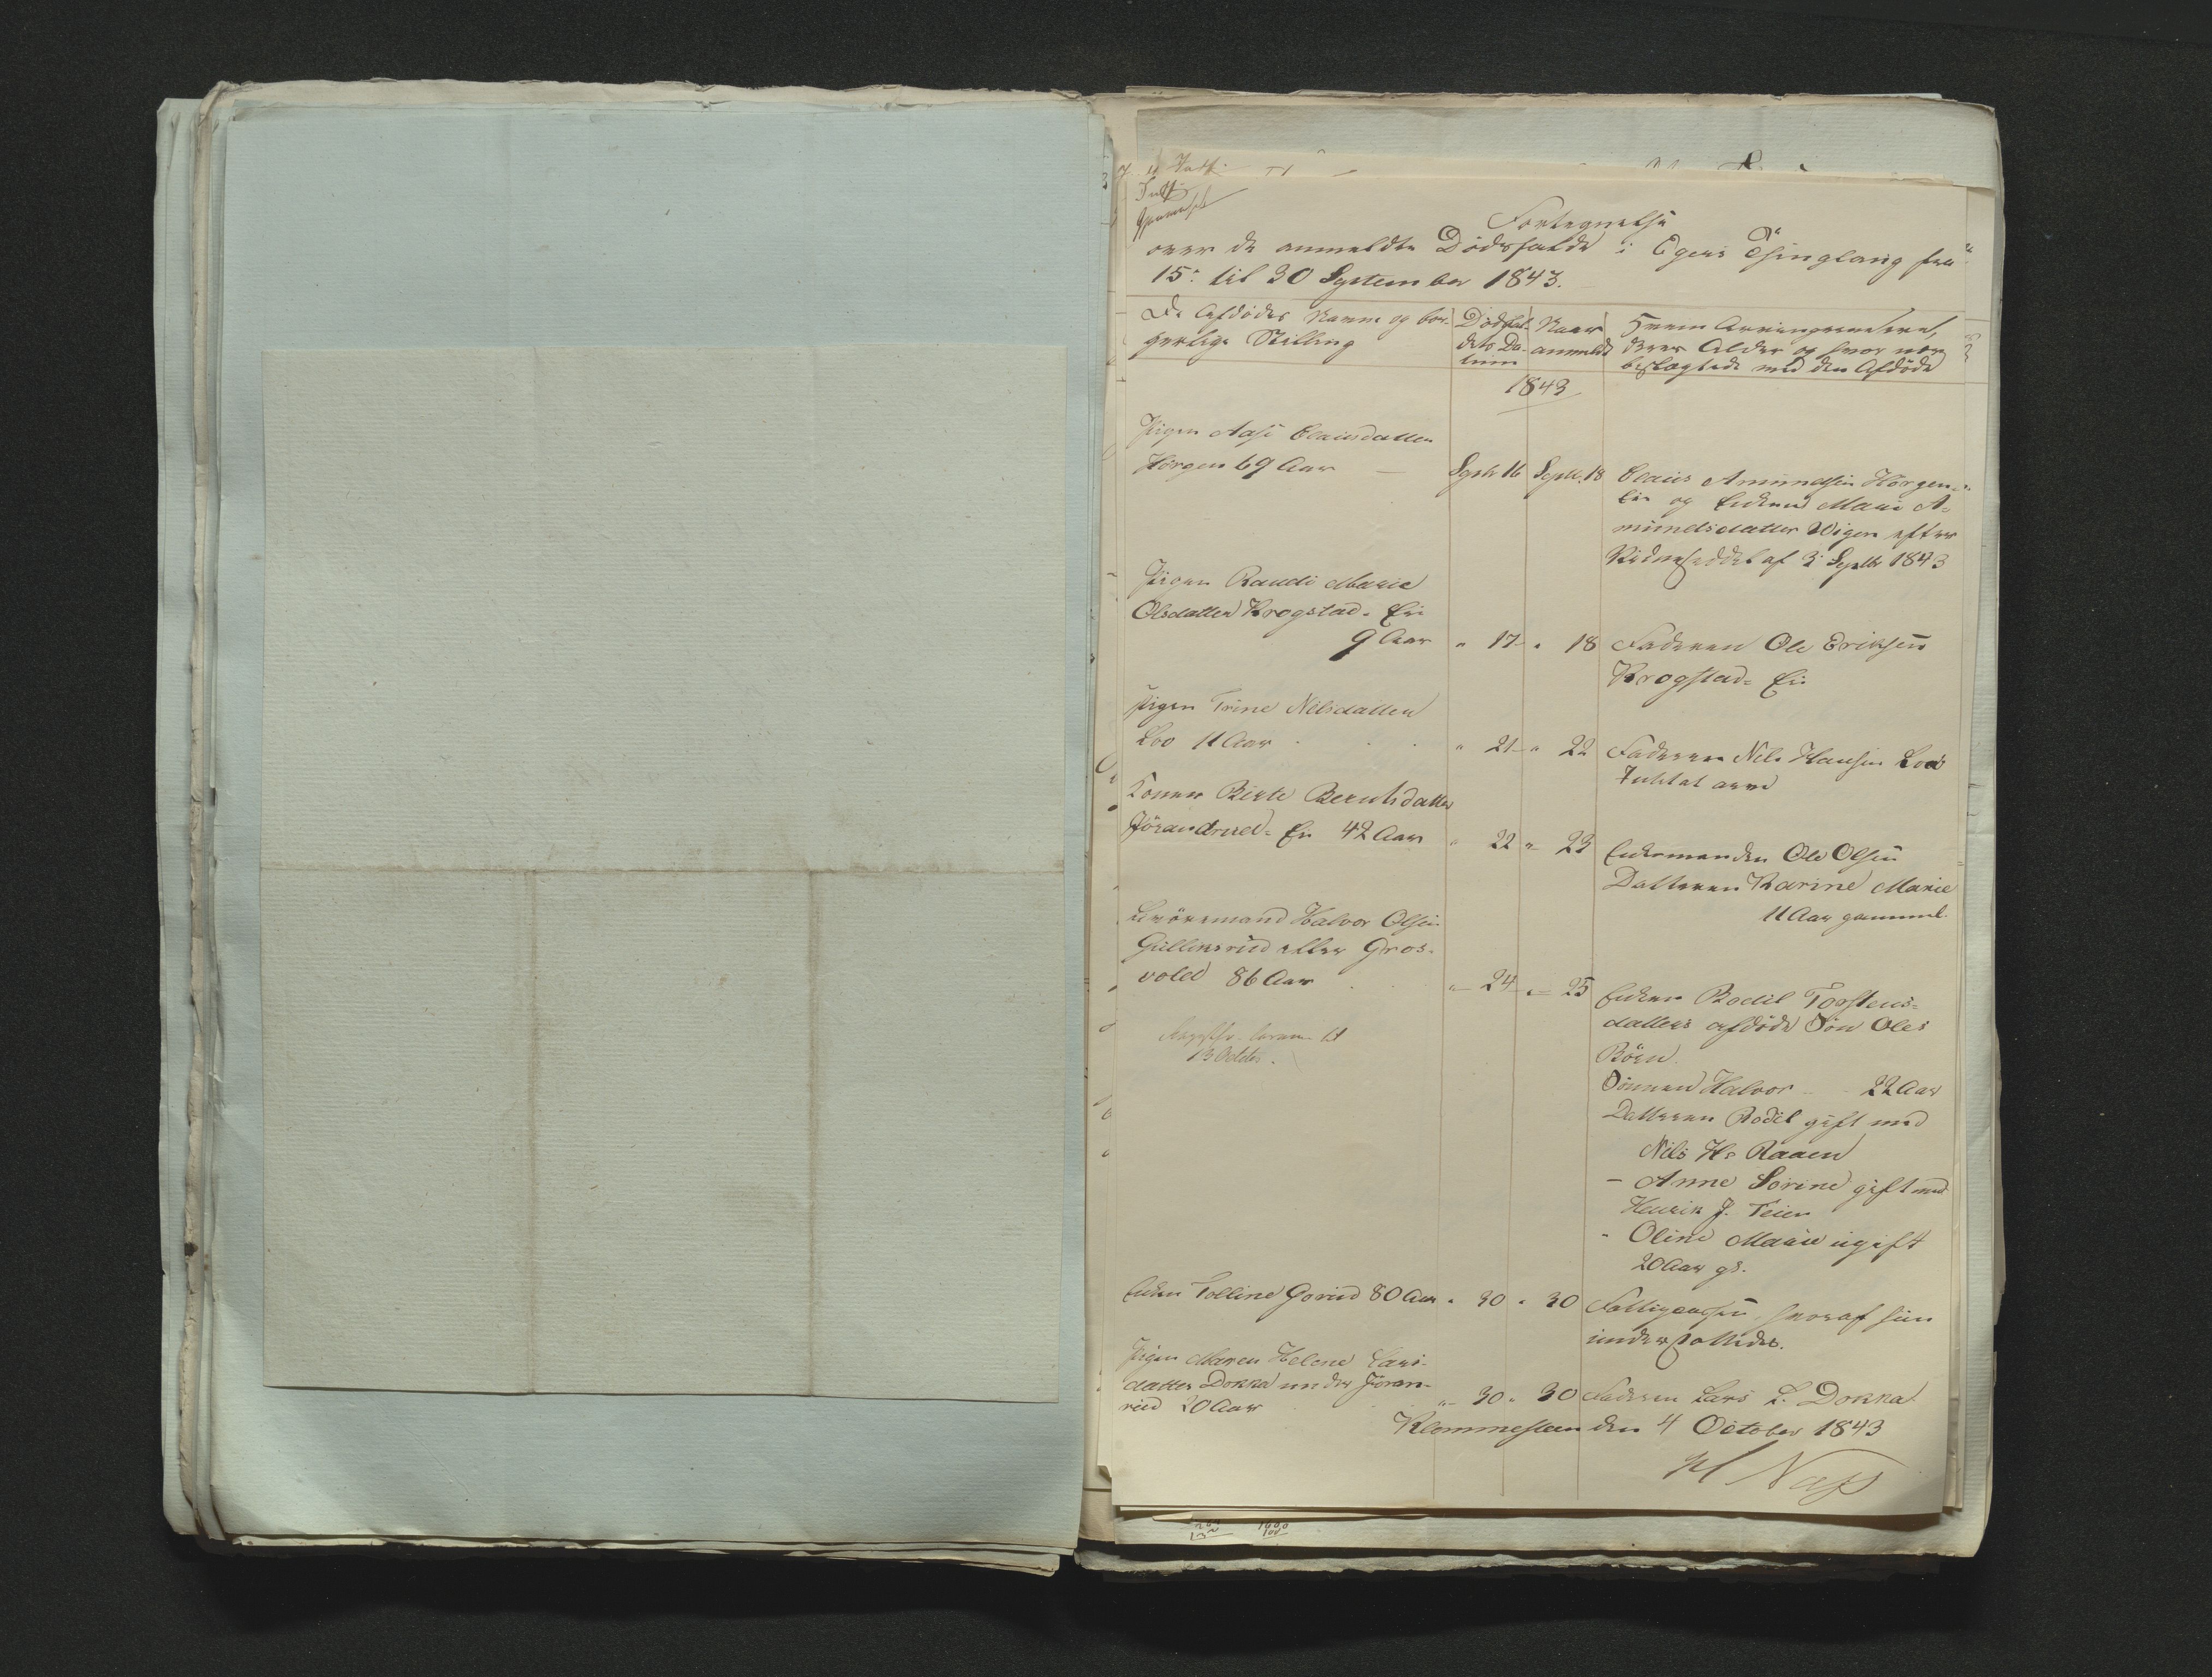 Fortegnelse
over de anmeldte Dødsfalde i Egers Thinglaug fra
15de til 30 September 1843.
De Afdødes Navne og bor-
gerlige Stilling
Dødsfal-
dets Da-
tum
Naar
anmeldt
Hvem Arvingerne ere,
deres Alder og hvor nær
beslægtede med den Afdøde
1843
Pigen Aase Clausdatter
Horgen 69 Aar
Septr 16
Septr. 18
Claus Amundsen Horgen
Eie og Enken Mari A-
mundsdatter Wigen efter
af 3 Septbr 1843
Pigen Randi Marie
Olsdatter Krogstad- Eie
9 Aar
" 17 " 18
Faderen Ole Eriksen
Krogstad- Eie
Pigen Trine Nilsdatter
Loo 11 Aar
" 21 " 22
Faderen Nils Hansen Loe
Intet at arve
Konen Birte Berntsdatter
Jørandrud- Eie 42 Aar
" 22 " 23
Enkemanden Ole Olsen
Datteren Karine Marie
11 Aar gammel.
Halvor Olsen
Gulliksrud eller Gros-
vold 86 Aar
" 24 " 25
Enken Bodil Torstens-
datters afdøde Søn Oles
Børn.
Sønnen Halvor 22 Aar
Datteren Bodil gift med
Nils Hs Raaen
- Anne Sorine gift med
Henrik J. Teien
" Oline Marie ugift
20 Aar gl.
til
13 Octbr.
Enken Tolline Gorud 80 Aar " 30 " 30
Fattigcassen hvoraf hun
understøttedes.
Pigen Maren Helene Lars-
datter Dokka under Jøran-
rud 20 Aar
" 30 " 30
Faderen Lars L. Dokka
Klommesteen den 4 October 1843
H Næss